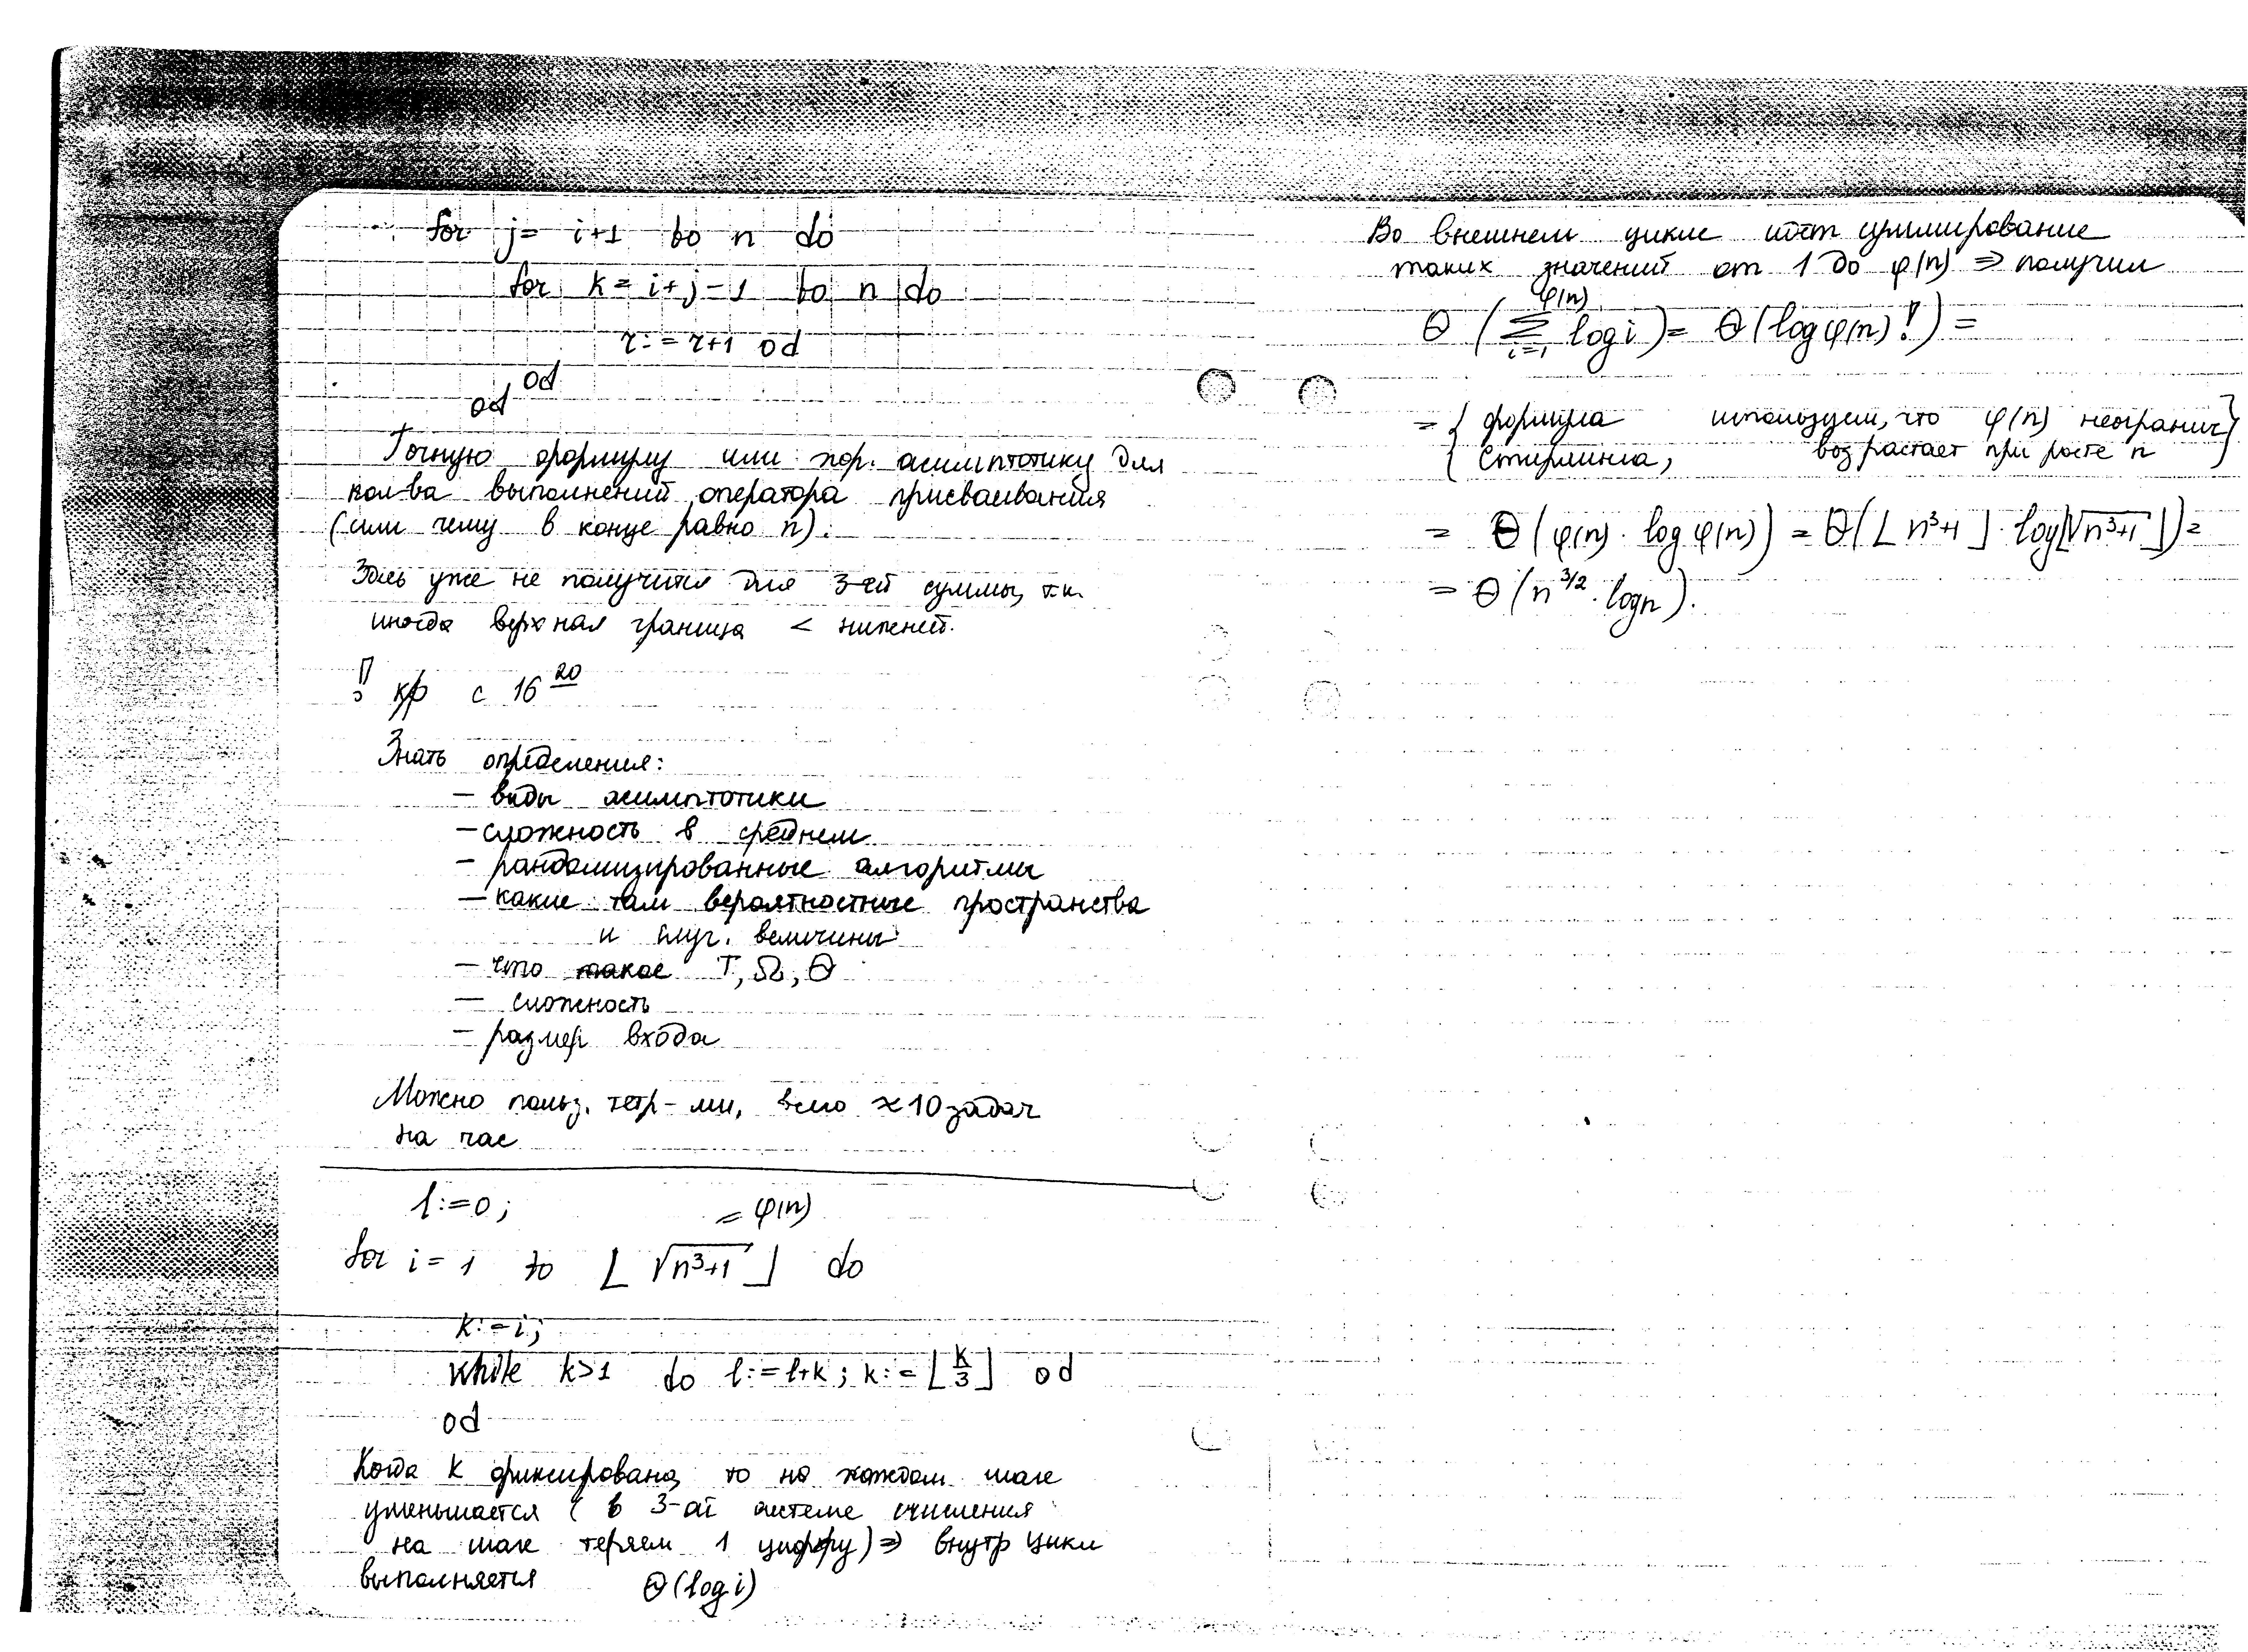 for j= i+1 to n do
for k= i+j-1 to n do
r:=r+1 od
od
od
Точную формулу или хор. асимптотику для
кол-ва выполнений оператора присваивания
(или чему в конце равно n).
Здесь уже не получится для 3-ей суммы, т.к.
иногда верхная граница < нижней.
! кр с 16 20
Знать определения:
- виды асимптотики
- сложность в среднем
- рандомизированные алгоритмы
- какие там вероятностные пространства
и случ. величины
- что такое T, Ω, Θ
- сложность
- размер входа
Можно польз. тетр-ми, всего ≈10 задач
на час
l:=0; = φ(n)
for i= 1 to ⌊√(n³+1)⌋ do
k:=i;
while k>1 do l:=l+k; k:=⌊k/3⌋ od
od
Когда k фиксировано, то на каждом шаге
уменьшается (в 3-ой системе счисления
на шаге теряем 1 цифру) ⇒ внутр цикл
выполняется Θ(log i)
Во внешнем цикле идёт суммирование
таких значений от 1 до φ(n) ⇒ получим
Θ(∑_{i=1}^{φ(n)} log i) = Θ(log φ(n)!) =
= { формула используем, что φ(n) неогранич }
{ Стирлинга, возрастает при росте n }
= Θ(φ(n) · log φ(n)) = Θ(⌊n³+1⌋ · log⌊√(n³+1)⌋) =
= Θ(n^{3/2} · log n).